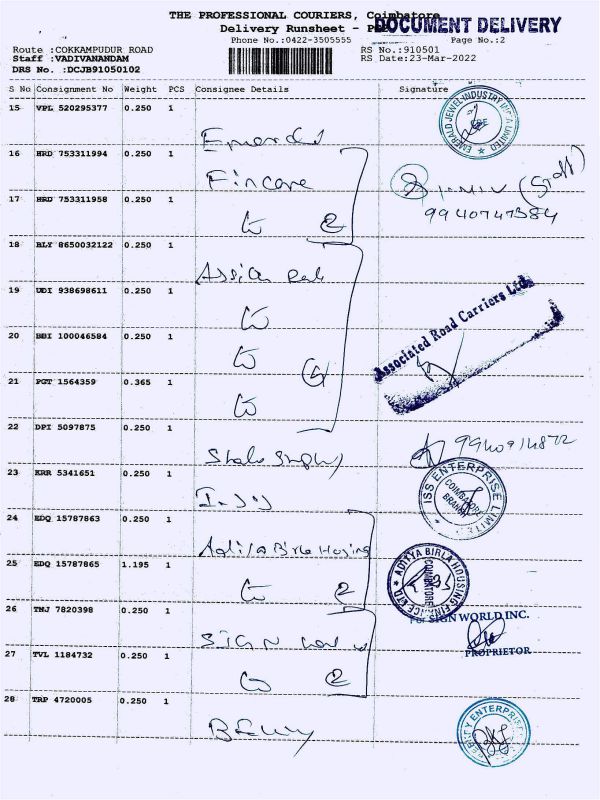 THE PROFESSIONAL COURIERS, Coimbatore
DOCUMENT DELIVERY
Delivery Runsheet -
Phone No.:0422-3505555 Page No.:2
Route :COKKAMPUDUR ROAD RS No.:910501
Staff :VADIVANANDAM RS Date:23-Mar-2022
DRS No. :DCJB91050102
S No Consignment No Weight PCS Consignee Details Signature
15 VPL 520295377 0.250 1
Emerald
EMERALD JEWEL INDUSTRY INDIA LIMITED
CBE
16 HRD 753311994 0.250 1
Fincare
(Staff)
17 HRD 753311958 0.250 1
9940747384
2
18 BLY 8650032122 0.250 1
19 UDI 938698611 0.250 1
Associated Road Carriers Ltd.
20 BBI 100046584 0.250 1
4
21 PGT 1564359 0.365 1
22 DPI 5097875 0.250 1
9940914872
23 KRR 5341651 0.250 1
ISS ENTERPRISE LIMITED
COIMBATORE BRANCH
24 EDQ 15787863 0.250 1
Aditya Birla Housing
ADITYA BIRLA HOUSING FINANCE LTD.
COIMBATORE
25 EDQ 15787865 1.195 1
2
26 TMJ 7820398 0.250 1
For SIGN WORLD INC.
SIGN world
PROPRIETOR
27 TVL 1184732 0.250 1
2
28 TRP 4720005 0.250 1